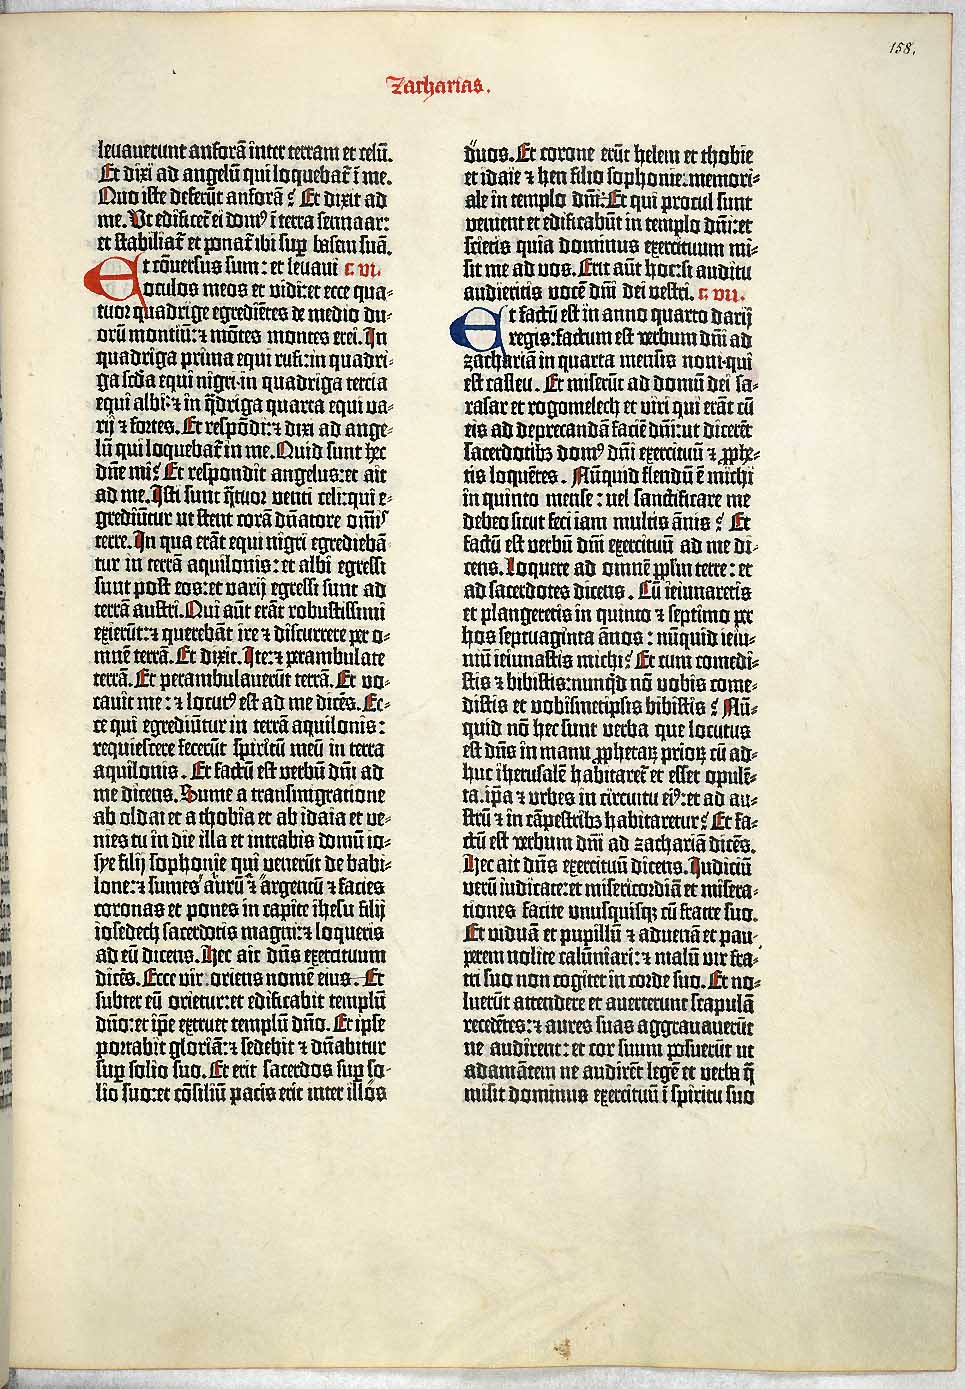 158.
Zacharias.
levaverunt anforā inter terram et celū.
Et dixi ad angelū qui loquebat̄ ī me.
Quo iste deferūt anforā? Et dixit ad
me. Ut edificet̄ ei domꝰ ī terra sennaar:
et stabiliat̄ et ponat̄ ibi suꝑ basem suā.
Et cōversus sum: et levavi c. vi.
oculos meos et vidi: et ecce qua-
tuor quadrige egrediētes de medio du-
orū montiū: ⁊ mōtes montes erei. In
quadriga prima equi rufi: in quadri-
ga scďa equi nigri· in quadriga tercia
equi albi: ⁊ in q̄driga quarta equi va-
rij ⁊ fortes. Et respōdi: ⁊ dixi ad ange-
lū qui loquebat̄ in me. Quid sunt hec
dn̄e mi? Et respondit angelus: et ait
ad me. Isti sunt q̄tuor venti celi: qui e-
grediūtur ut stent corā dn̄atore omīs
terre. In qua erāt equi nigri egrediebā
tur in terrā aquilonis: et albi egressi
sunt post eos: et varij egressi sunt ad
terrā austri. Qui aūt erāt robustissimi
exierūt: ⁊ querebāt ire ⁊ discurrere per o-
mnē terrā. Et dixit. Ite: ⁊ perambulate
terrā. Et perambulaverūt terrā. Et vo-
cavit me: ⁊ locutꝰ est ad me dicēs. Ec-
ce qui egrediūtur in terrā aquilonis:
requiescere fecerūt spiritū meū in terra
aquilonis. Et factū est verbū dn̄i ad
me dicens. Sume a transmigratione
ab oldai et a thobia et ab idaia et ve-
nies tu in die illa et intrabis domū io-
sye filij sophonie qui venerūt de babi-
lone: ⁊ sumes aurū ⁊ argentū ⁊ facies
coronas et pones in capite ihesu filij
iosedech sacerdotis magni: ⁊ loqueris
ad eū dicens. Hec ait dn̄s exercituum
dicēs. Ecce vir oriens nomē eius. Et
subter eū orietur: et edificabit templū
dn̄o: et ip̄e extruet templū dn̄o. Et ipse
portabit gloriā: ⁊ sedebit ⁊ dn̄abitur
suꝑ solio suo. Et erit sacerdos suꝑ so-
lio suo: et cōsiliū pacis erit inter illos
duos. Et corone erūt helem et thobie
et idaie ⁊ hen filio sophonie: memori-
ale in templo dn̄i: Et qui procul sunt
venient et edificabūt in templo dn̄i: et
scietis quia dominus exercituum mi-
sit me ad vos. Erit aūt hoc: si auditu
audieritis vocē dn̄i dei vestri. c. vii.
Et factū est in anno quarto darij
regis: factum est verbum dn̄i ad
zachariā in quarta mensis noni· qui
est casleu. Et miserūt ad domū dei sa-
rasar et rogomelech et viri qui erāt cū
eis ad deprecandā faciē dn̄i: ut dicerēt
sacerdotibꝫ domꝰ dn̄i exercituū ⁊ ꝓphe-
tis loquētes. Nūquid flendū ē michi
in quinto mense: vel sanctificare me
debeo sicut feci iam multis ānis? Et
factū est verbū dn̄i exercituū ad me di-
cens. Loquere ad omnē pplm terre: et
ad sacerdotes dicens. Cū ieiunaretis
et plangeretis in quinto ⁊ septimo per
hos septuaginta ānos: nūquid ieiu-
niū ieiunastis michi? Et cum comedi-
stis ⁊ bibistis: nunq̄d nō vobis come-
distis et vobismetipsis bibistis? Nū-
quid nō hec sunt verba que locutus
est dn̄s in manu ꝓphetaꝝ prioꝝ cū ad-
huc iherusalē habitaret̄ et esset opulē-
ta· ip̄a ⁊ urbes in circuitu eiꝰ: et ad au-
strū ⁊ in cāpestribꝫ habitaretur? Et fa-
ctū est verbum dn̄i ad zachariā dicēs.
Hec ait dn̄s exercituū dicens. Iudiciū
verū iudicate: et misericordiā et misera-
tiones facite unusquisqꝫ cū fratre suo.
Et viduā et pupillū ⁊ advenā et pau-
perem nolite calūniari: ⁊ malū vir fra-
tri suo non cogitet in corde suo. Et no-
luerūt attendere et averterunt scapulā
recedētes: ⁊ aures suas aggravaverūt
ne audirent: et cor suum posuerūt ut
adamātem ne audirēt legē et verba q̄
misit dominus exercituū ī spiritu suo